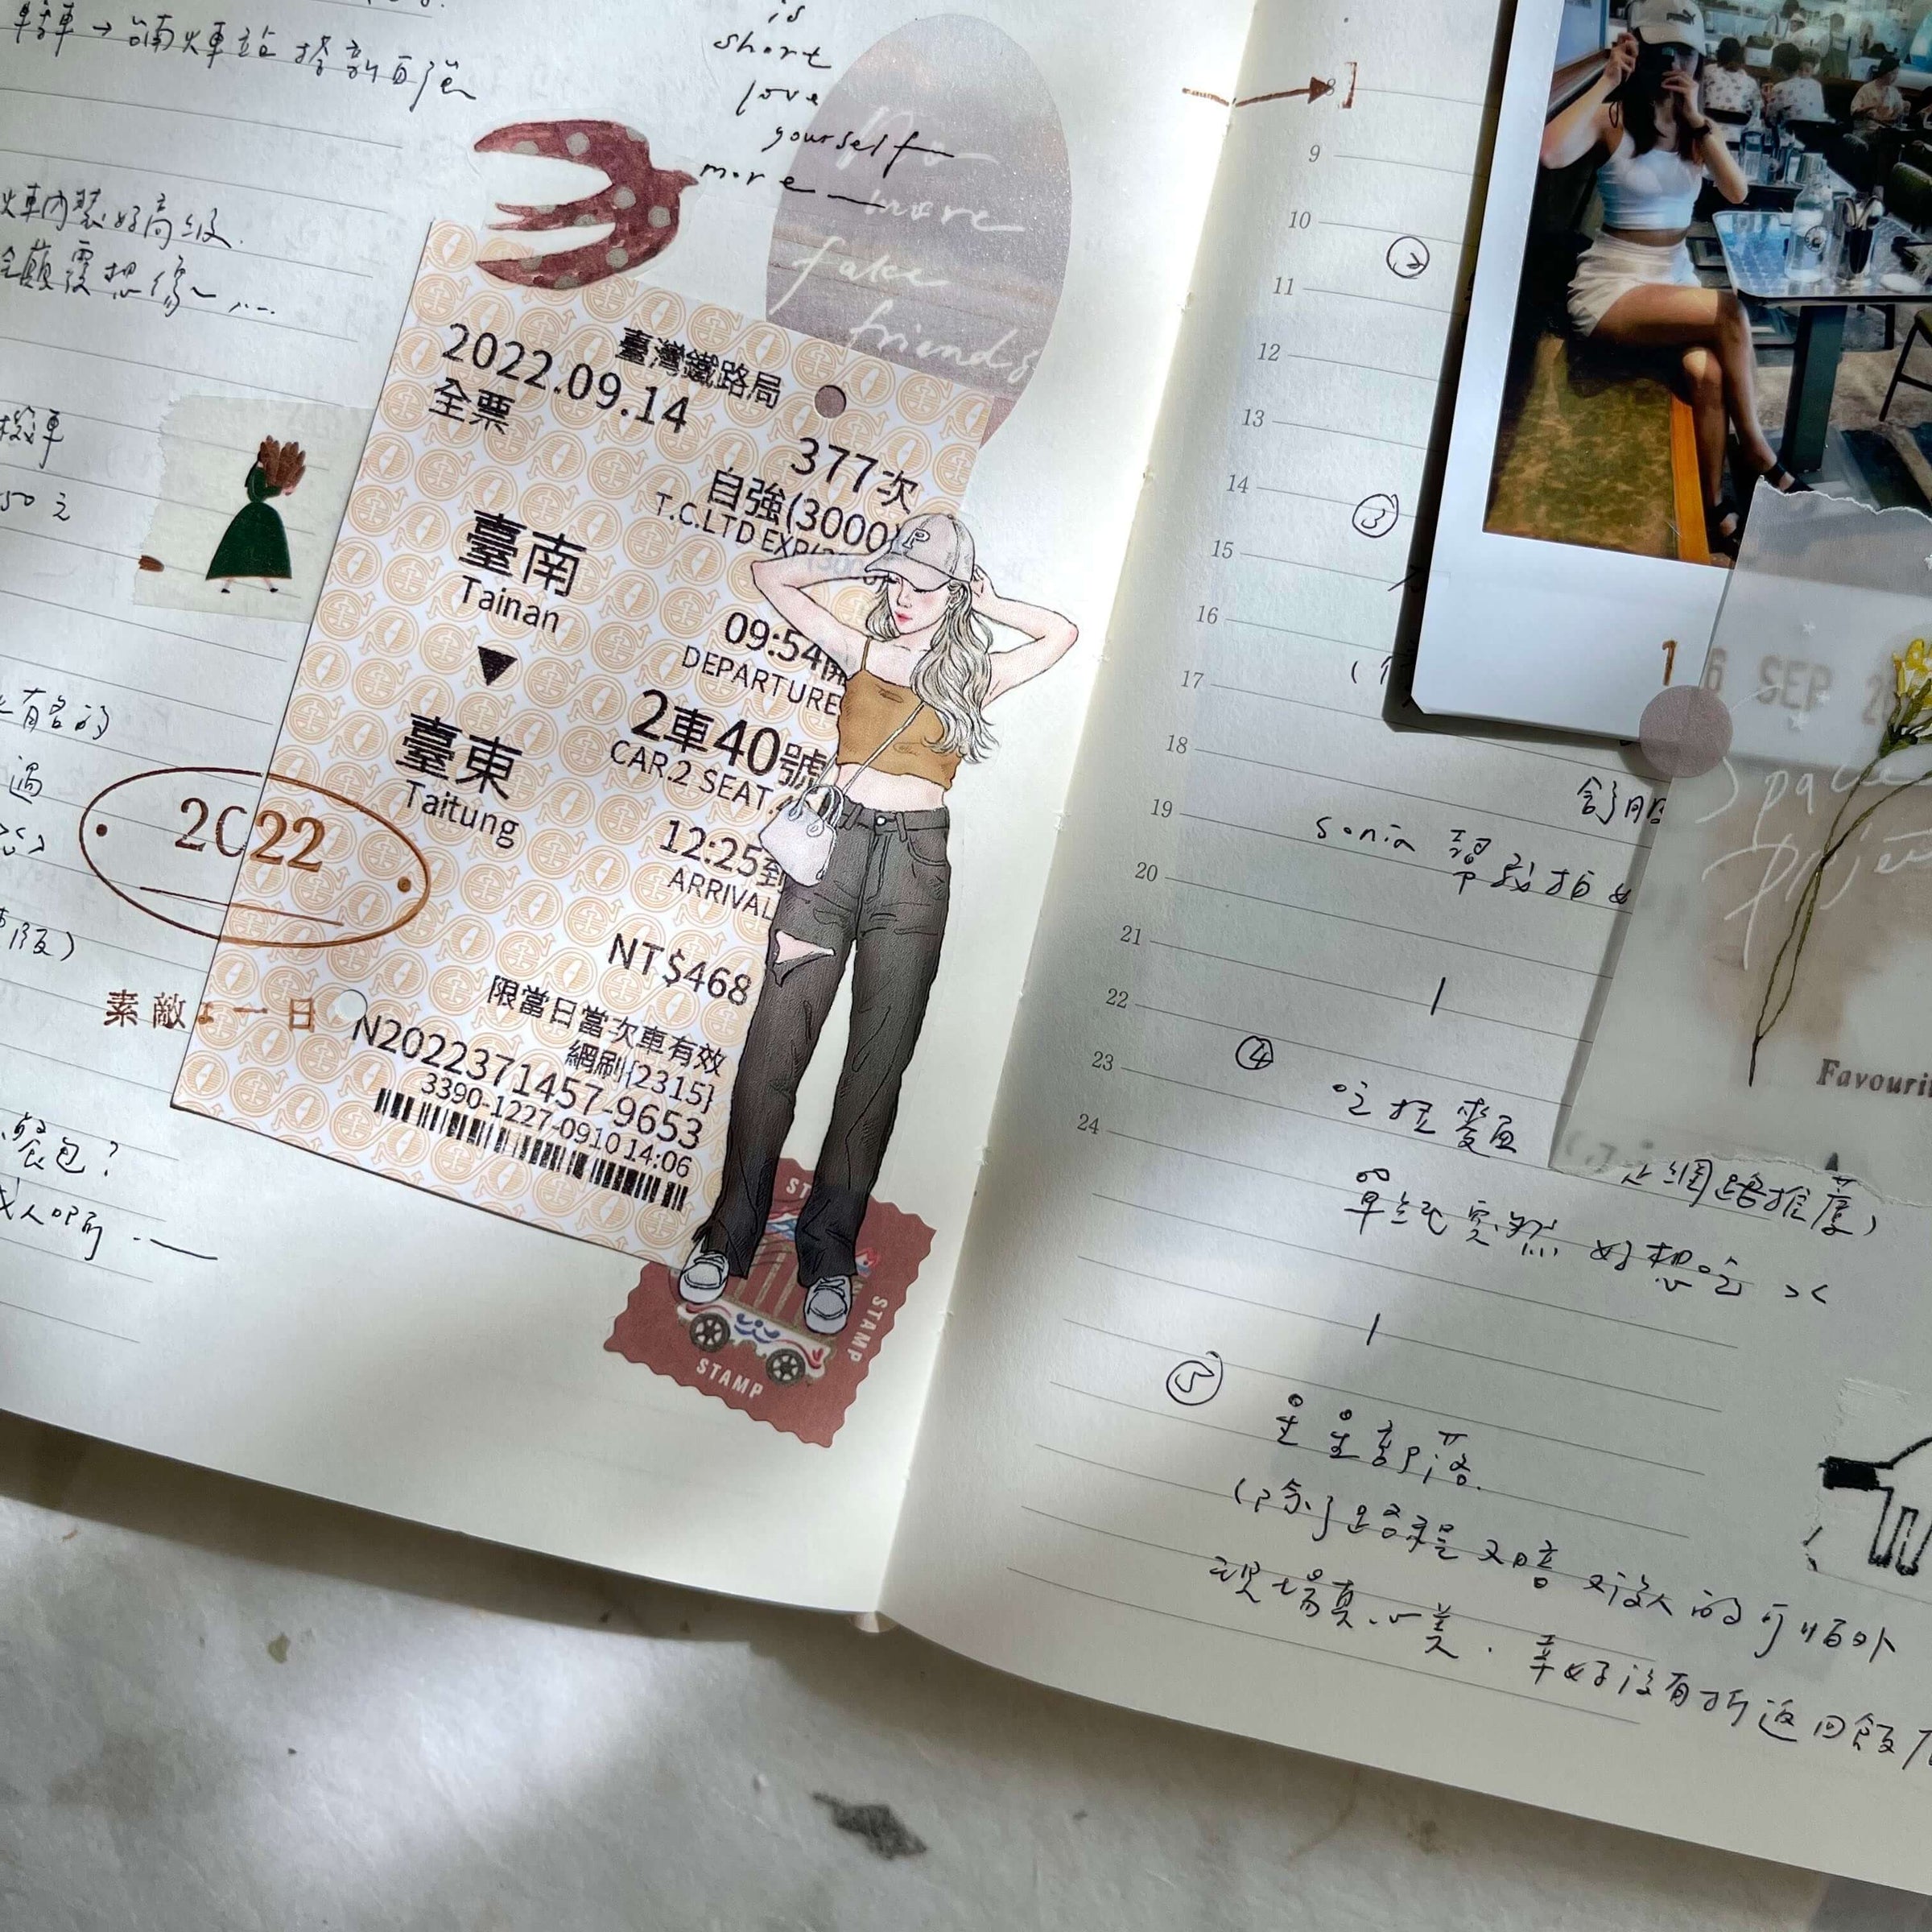 轉車→台南火車站 搭新自強
is
short
love
yourself
more
No
more
fake
friends
火車內裝好高級.
全顛覆想像~....
機車
50元
有名的
過
飯)
餐包?
2022
素敵な一日
臺灣鐵路局
2022.09.14
全票
377次
自強(3000)
T.C.LTD EXP(300
臺南
Tainan
09:54開
DEPARTURE
臺東
Taitung
2車40號
CAR.2 SEAT.
12:25到
ARRIVAL
NT$468
限當日當次車有效
網刷{2315}
N2022371457-9653
3390-1227-0910 14:06
STAMP
STAMP
8
9
10
11
12
13
14
15
16
17
18
19
20
21
22
23
24
②
③
P
16 SEP 2
Space
Project
Favouri
舒服
sonia 幫我拍
④
吃拉麵
網路推薦)
單純突然 好想吃 ><
⑤
星星部落
(除了路程又暗又沒人的可怕外
現場真心美. 幸好沒有折返回飯